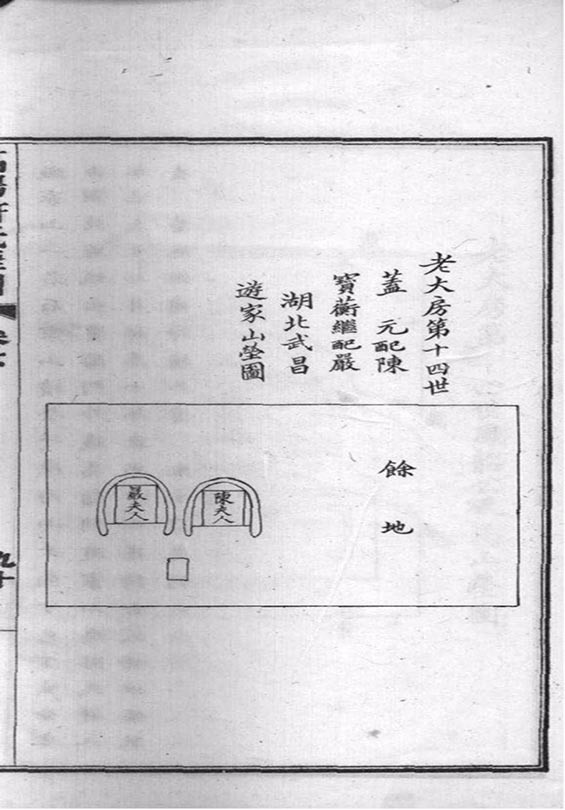 老大房第十四世
蓋 元配陳
寶蘅繼配嚴
湖北武昌
遊家山塋圖
餘地
陳夫人
嚴夫人
九十